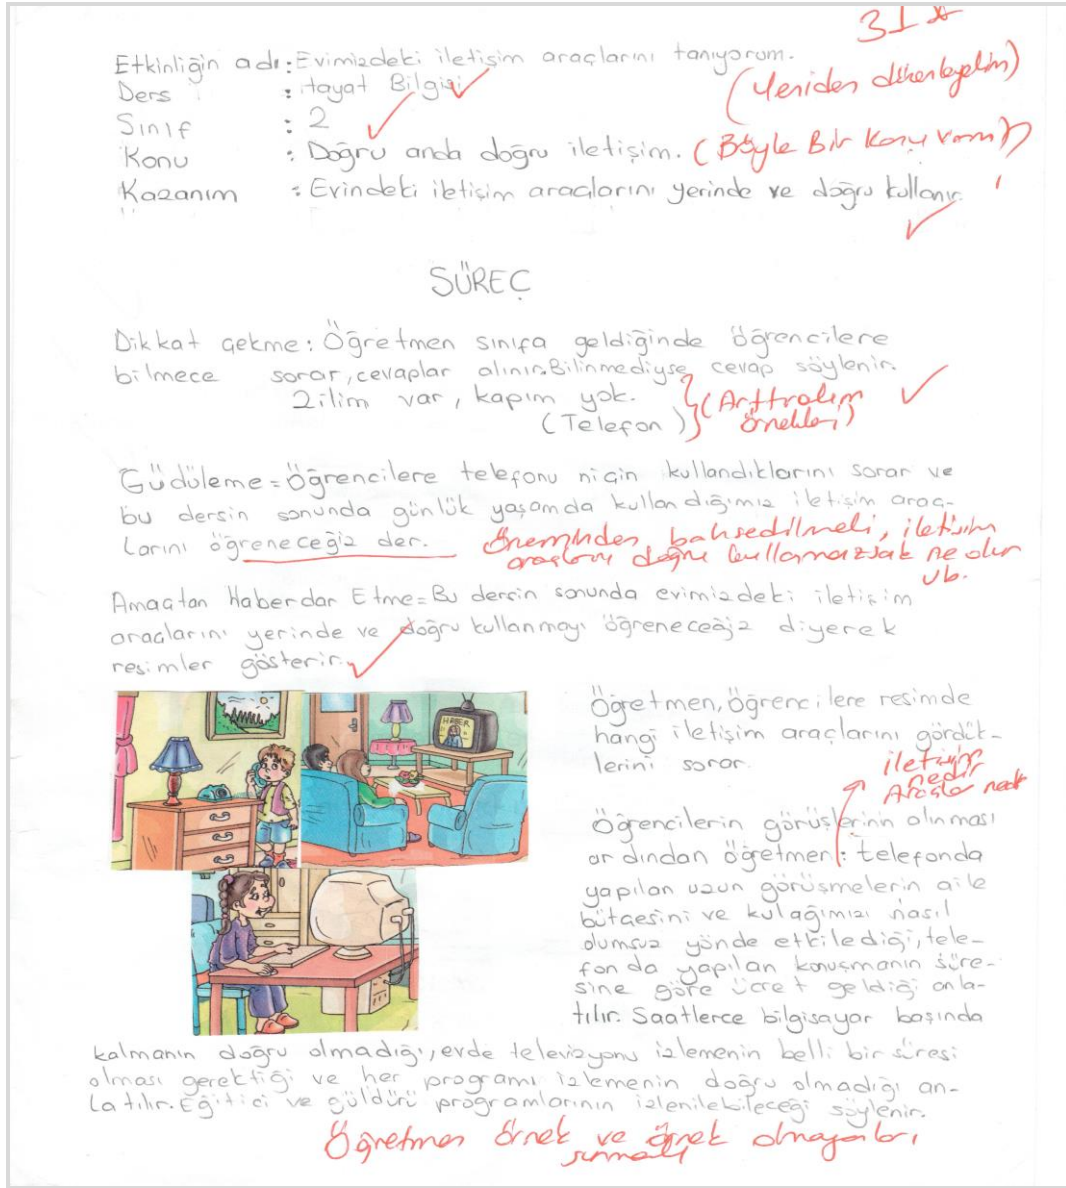 31 *
Etkinliğin adı: Evimizdeki iletişim araçlarını tanıyorum.
(Yeniden düzenleyelim)
Ders : Hayat Bilgisi
Sınıf : 2
Konu : Doğru anda doğru iletişim. (Böyle Bir Konu var mı?)
Kazanım : Evindeki iletişim araçlarını yerinde ve doğru kullanır.
SÜREÇ
Dikkat çekme: Öğretmen sınıfa geldiğinde öğrencilere
bilmece sorar, cevaplar alınır. Bilinmediyse cevap söylenir.
Zilim var, kapım yok.
(Telefon)
(Arttıralım
örnekleri)
Güdüleme = Öğrencilere telefonu niçin kullandıklarını sorar ve
bu dersin sonunda günlük yaşamda kullandığımız iletişim araç-
larını öğreneceğiz der.
Öneminden bahsedilmeli, iletişim
araçlarını doğru kullanmazsak ne olur
vb.
Amaçtan Haberdar Etme = Bu dersin sonunda evimizdeki iletişim
araçlarını yerinde ve doğru kullanmayı öğreneceğiz diyerek
resimler gösterir.
HABER
Öğretmen, öğrencilere resimde
hangi iletişim araçlarını gördük-
lerini sorar.
iletişim
nedir
Araçlar nedir
Öğrencilerin görüşlerinin alınması
ardından öğretmen: telefonda
yapılan uzun görüşmelerin aile
bütçesini ve kulağımızı nasıl
olumsuz yönde etkilediği, tele-
fonda yapılan konuşmanın süre-
sine göre ücret geldiği anla-
tılır. Saatlerce bilgisayar başında
kalmanın doğru olmadığı, evde televizyonu izlemenin belli bir süresi
olması gerektiği ve her programı izlemenin doğru olmadığı an-
latılır. Eğitici ve güldürü programlarının izlenilebileceği söylenir.
Öğretmen örnek ve örnek olmayanları
sunmalı